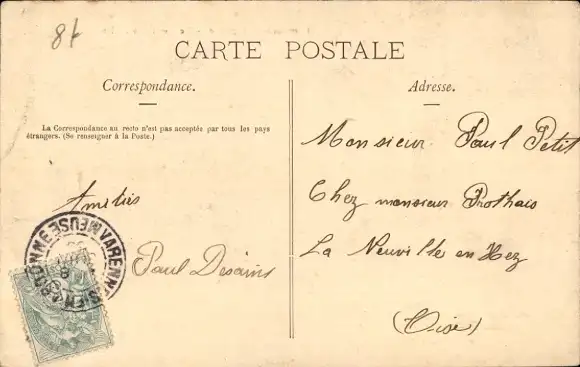 8f
CARTE POSTALE
Correspondance.
La Correspondance au recto n'est pas acceptée par tous les pays
étrangers. (Se renseigner à la Poste.)
Amitiés
Paul Desains
VARENNES-EN-ARGONNE MEUSE
Adresse.
Monsieur Paul Petit
Chez monsieur Prothais
La Neuville en Hez
(Oise)